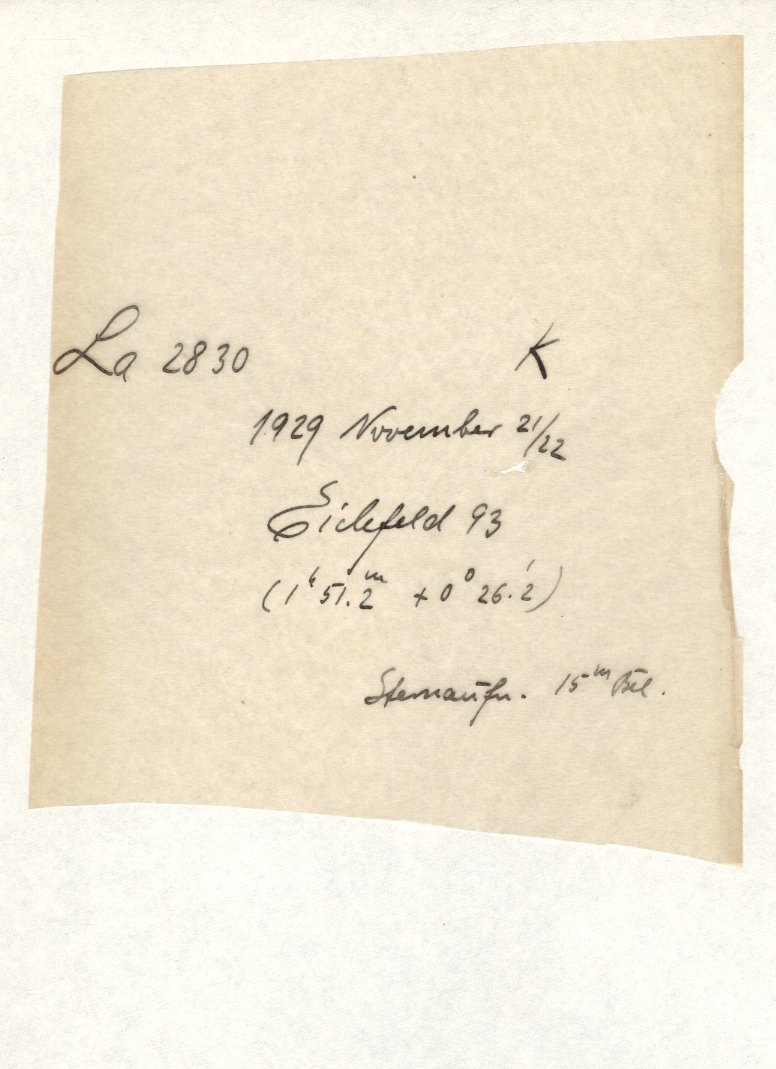 La 2830 K
1929 November 21/22
Eichfeld 93
(1ʰ 51.2ᵐ + 0⁰ 26.2')
Sternaufn. 15ᵐ Bel.